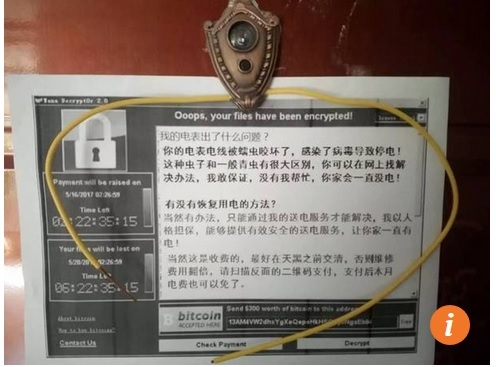 Wana Decrypt0r 2.0
Ooops, your files have been encrypted!
我的电表出了什么问题？
你的电表电线被蠕虫咬坏了，感染了病毒导致停电！
这种虫子和一般青虫有很大区别，你可以在网上找解
决办法，我敢保证，没有我帮忙，你家会一直没电！
有没有恢复用电的方法？
当然有办法，只能通过我的送电服务才能解决，我以人
格担保，能够提供有效安全的送电服务，让你家一直有
电！
当然这是收费的，最好在天黑之前交清，否则维修
费用翻倍，请扫描反面的二维码支付，支付后本月
电费也可以免了。
Payment will be raised on
5/16/2017 02:26:59
Time Left
02:22:35:15
Your files will be lost on
5/20/2017 02:26:59
Time Left
06:22:35:15
About bitcoin
How to buy bitcoins?
Contact Us
bitcoin
ACCEPTED HERE
Send $300 worth of bitcoin to this address:
Copy
Check Payment
Decrypt
i